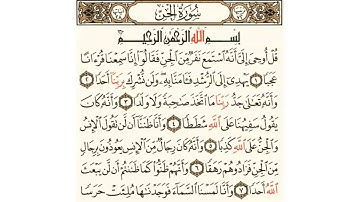 سُورَةُ الجِنِّ
بِسْمِ اللَّهِ الرَّحْمَٰنِ الرَّحِيمِ
قُلْ أُوحِيَ إِلَيَّ أَنَّهُ اسْتَمَعَ نَفَرٌ مِّنَ الْجِنِّ فَقَالُوا إِنَّا سَمِعْنَا قُرْءَانًا
عَجَبًا ١ يَهْدِي إِلَى الرُّشْدِ فَـَٔامَنَّا بِهِ وَلَن نُّشْرِكَ بِرَبِّنَا أَحَدًا ٢
وَأَنَّهُ تَعَالَىٰ جَدُّ رَبِّنَا مَا اتَّخَذَ صَاحِبَةً وَلَا وَلَدًا ٣ وَأَنَّهُ كَانَ
يَقُولُ سَفِيهُنَا عَلَى اللَّهِ شَطَطًا ٤ وَأَنَّا ظَنَنَّا أَن لَّن تَقُولَ الْإِنسُ
وَالْجِنُّ عَلَى اللَّهِ كَذِبًا ٥ وَأَنَّهُ كَانَ رِجَالٌ مِّنَ الْإِنسِ يَعُوذُونَ بِرِجَالٍ
مِّنَ الْجِنِّ فَزَادُوهُمْ رَهَقًا ٦ وَأَنَّهُمْ ظَنُّوا كَمَا ظَنَنتُمْ أَن لَّن يَبْعَثَ
اللَّهُ أَحَدًا ٧ وَأَنَّا لَمَسْنَا السَّمَاءَ فَوَجَدْنَاهَا مُلِئَتْ حَرَسًا